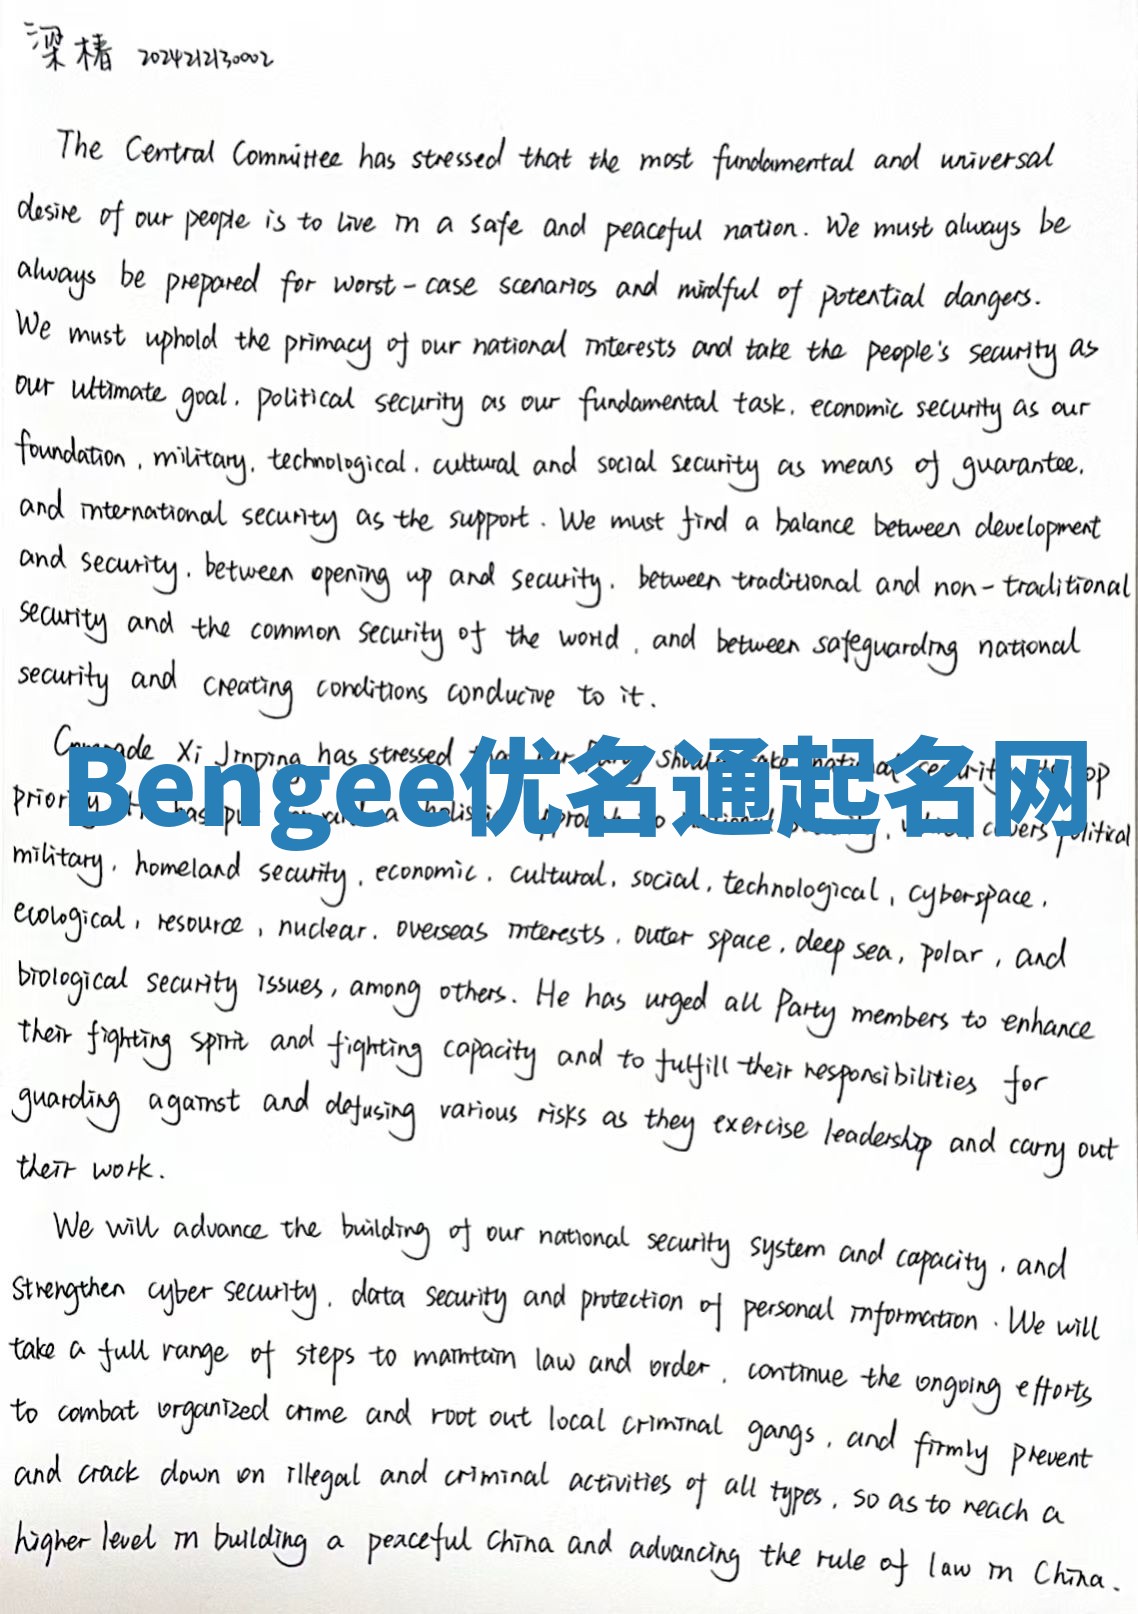 梁椿 2024212130002
The Central Committee has stressed that the most fundamental and universal
desire of our people is to live in a safe and peaceful nation. We must always be
always be prepared for worst-case scenarios and mindful of potential dangers.
We must uphold the primacy of our national interests and take the people's security as
our ultimate goal, political security as our fundamental task, economic security as our
foundation, military, technological, cultural and social security as means of guarantee,
and international security as the support. We must find a balance between development
and security, between opening up and security, between traditional and non-traditional
security and the common security of the world, and between safeguarding national
security and creating conditions conducive to it.
Xi Jinping has stressed
Bengee优名通起名网
political
military, homeland security, economic, cultural, social, technological, cyberspace,
ecological, resource, nuclear, overseas interests, outer space, deep sea, polar, and
biological security issues, among others. He has urged all Party members to enhance
their fighting spirit and fighting capacity and to fulfill their responsibilities for
guarding against and defusing various risks as they exercise leadership and carry out
their work.
We will advance the building of our national security system and capacity, and
strengthen cyber security, data security and protection of personal information. We will
take a full range of steps to maintain law and order, continue the ongoing efforts
to combat organized crime and root out local criminal gangs, and firmly prevent
and crack down on illegal and criminal activities of all types, so as to reach a
higher level in building a peaceful China and advancing the rule of law in China.